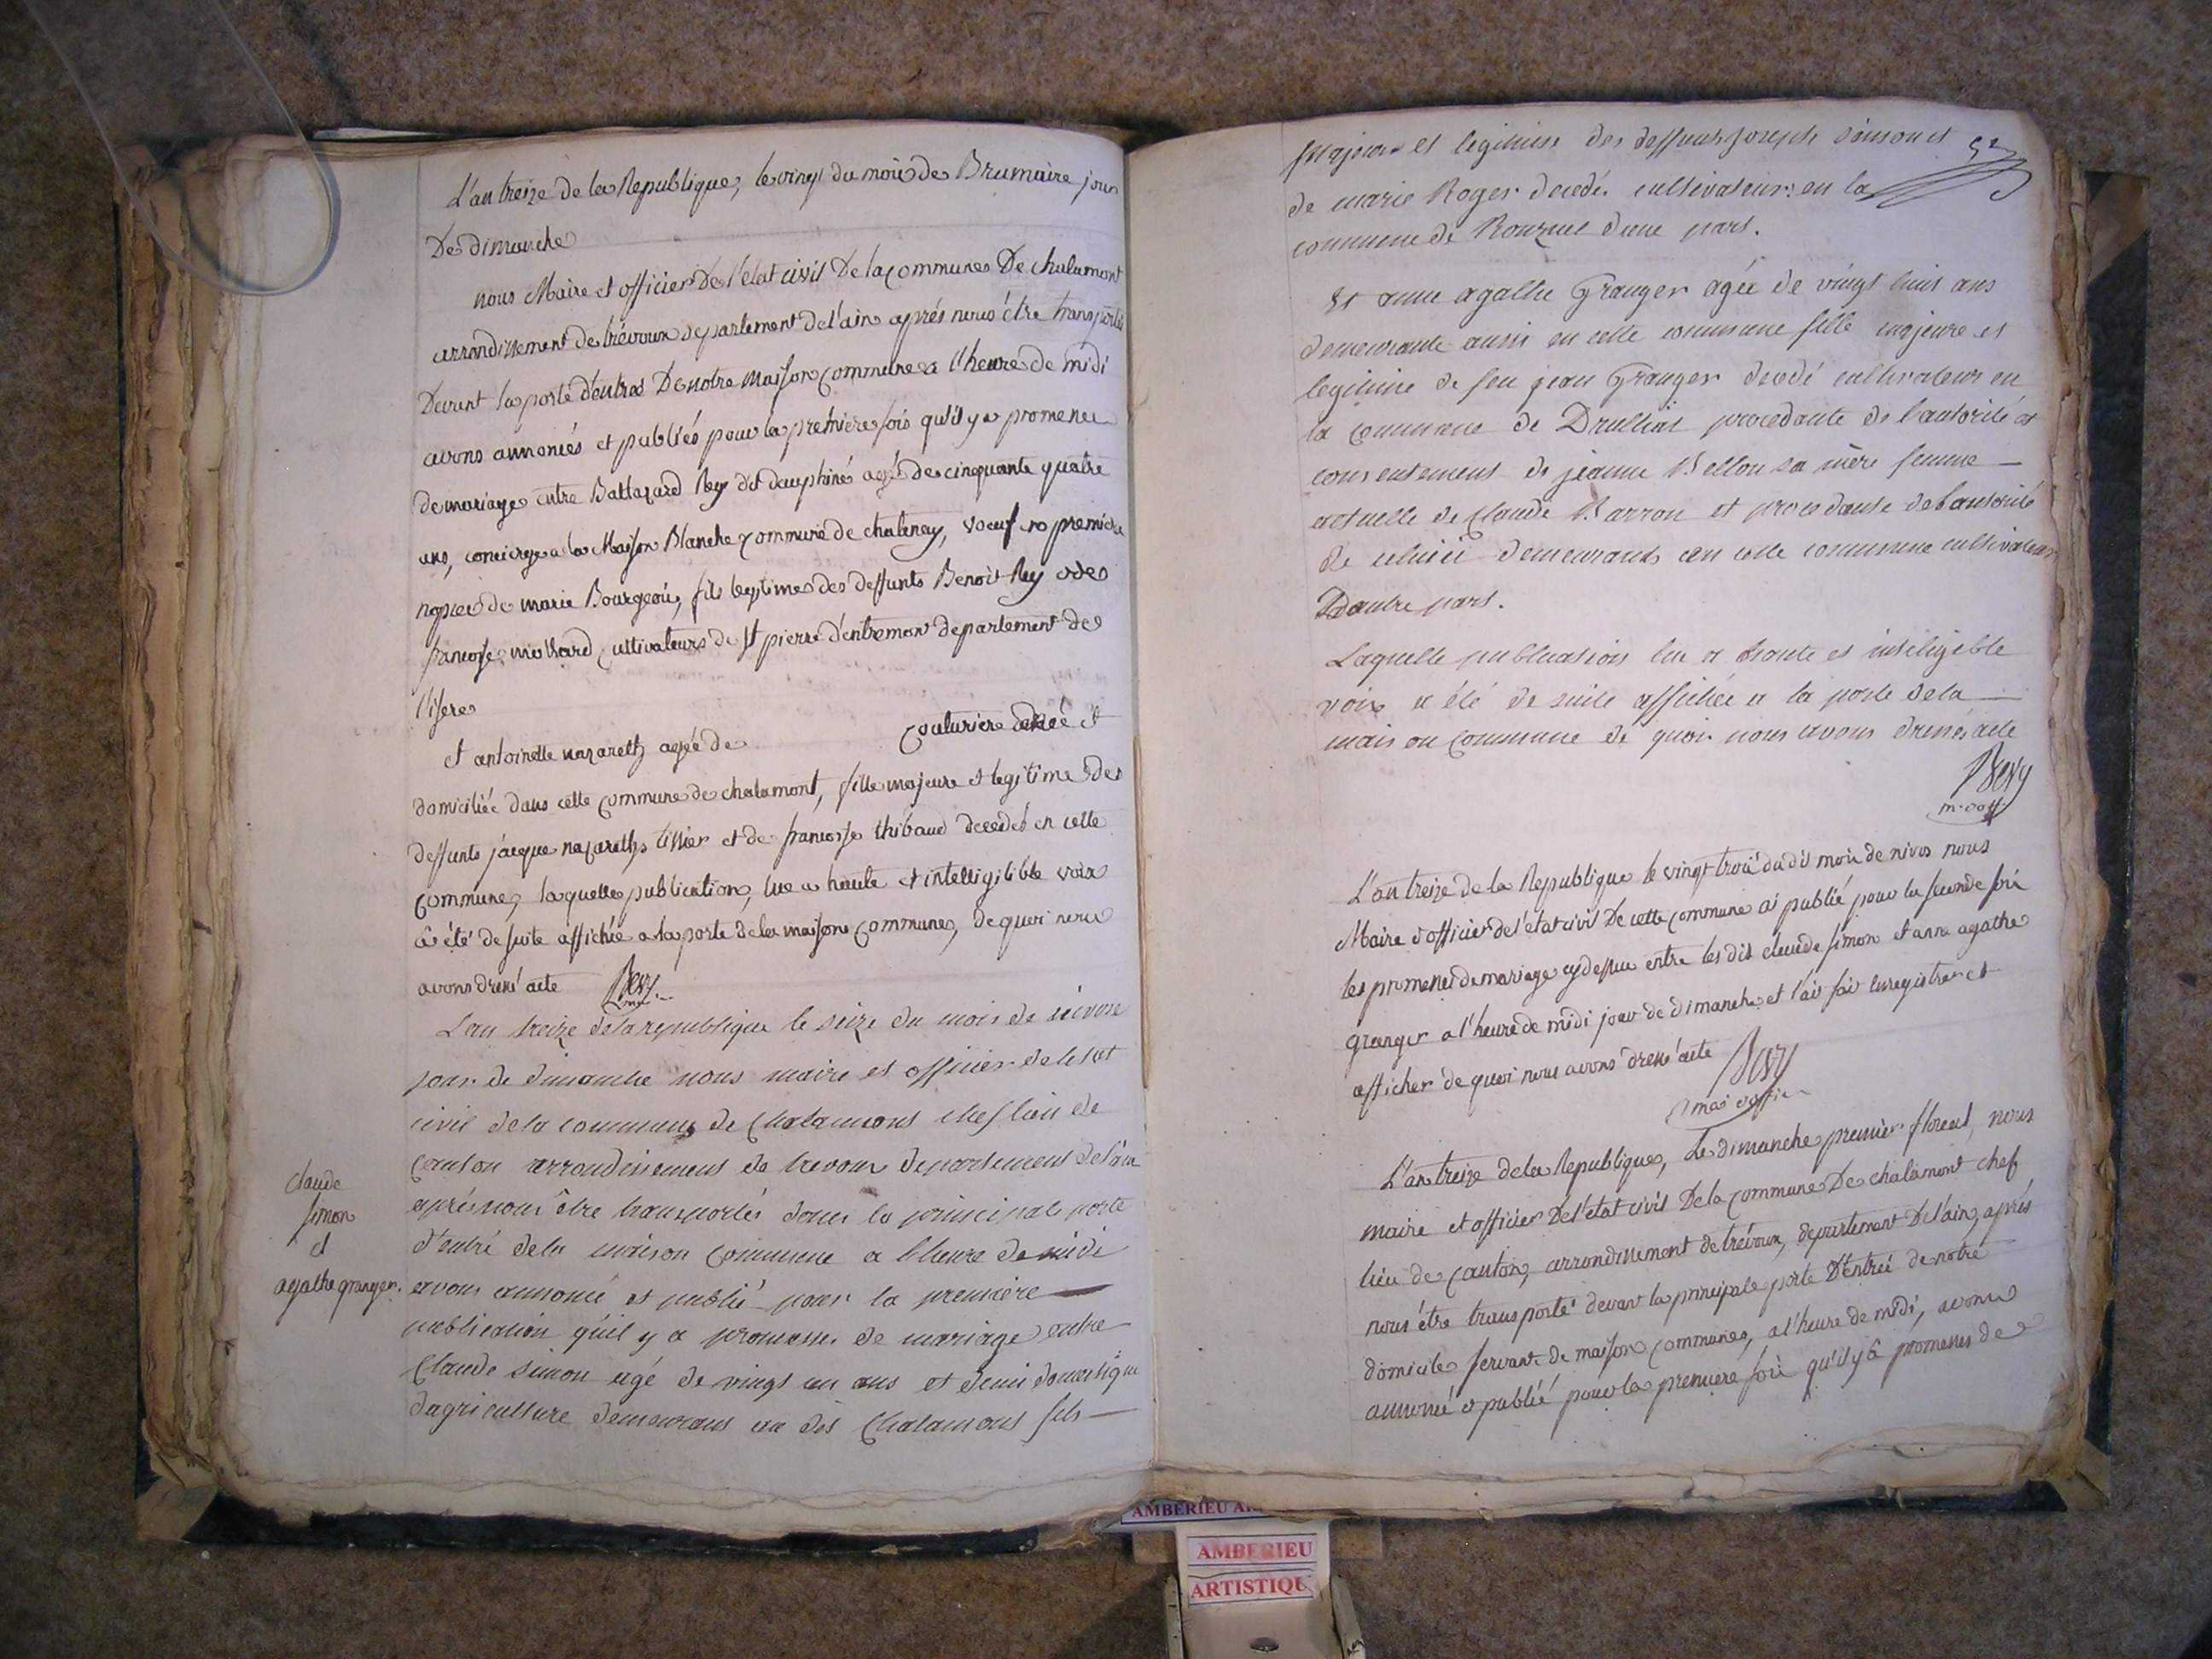 L'an treize de la Republique, le vingt du mois de Brumaire jour
De dimanche
nous Maire et officier de l'etat civil De la commune De chalamont
arrondissement de trévoux departement de l'ain après nous être transportés
Devant la porte d'entrée De notre maison commune a l'heure de midi
avons annoncés et publiés pour la premiere fois qu'il y a promesse
de mariage entre Baltazard Rey dit dauphiné agé de cinquante quatre
ans, concierge a la Maison Blanche commune de chatenay, voeuf en premiere
nopces de marie Bourgeois, fils legitime des deffunts Benoit Rey et de
francoise cultivateurs de st pierre d'entremont departement de
l'isere
et antoinette nazareth agée de couturiere et
domiciliée dans cette commune de chalamont, fille majeure et legitime des
deffunts jacque nazareth, tissier et de francoise thibaud decedés en cette
commune, laquelle publication, lue a haute et intelligilible voix
a été de suite affichée a la porte de la maison commune, de quoi nous
avons dressé acte
L'an treize de la republique le seize du mois de nivose
jour de dimanche nous maire et officier de letat
civil de la commune de Chalamont chef lieu de
canton arrondissement de trevoux departement de l'ain
après nous être transportés devant la principale porte
d'entré de la maison commune a l'heure de midi
avons annoncé et publié pour la premiere
publication qu'il y a promesse de mariage entre
Claude simon agé de vingt un ans et demi domestique
d'agriculture demeurant au dit Chalamont fils
claude
simon
et
agathe granger.
majeur et legitime des deffunts joseph simon et
de marie Roger decedé cultivateurs en la
commune de d'une part.
52
Et anne agathe Granger agée de vingt huit ans
demeurante aussi en cette commune fille majeure et
legitime de feu jean Granger decedé cultivateur en
la commune de Druillat procedante de l'autorité et
consentement de jeanne Bellon sa mère femme
actuelle de Claude Barron et procedante de l'autorité
de celui ci demeurants en cette commune cultivateur
D'autre part.
Laquelle publication lue a haute et inteligible
voix a été de suite affichée a la porte de la
maison commune de quoi nous avons dressés acte
L'an treize de la Republique le vingt trois du dit mois de nivos nous
Maire et officier de l'état civil De cette commune ai publié pour la seconde fois
les promesses de mariage cy dessus entre les dits claude simon et anne agathe
granger a l'heure de midi jour de dimanche et l'ai fait enregistrer et
afficher de quoi nous avons dressé acte
L'an treize de la Republique, Le dimanche premier floreal, nous
maire et officier De l'état civil De la commune De chalamont chef
lieu de canton, arrondissement de trévoux, departement De l'ain, après
nous être transporté devant la principale porte D'entrée de notre
domicile servant de maison commune, a l'heure de midi, avons
annoncé et publié pour la premiere fois qu'il y a promesses de
AMBERIEU
AMBERIEU
ARTISTIQU